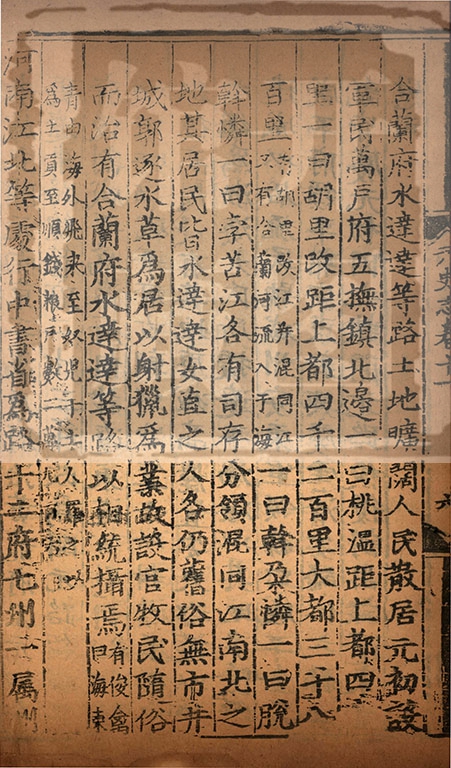 元史志卷十一
六
合蘭府水達達等路土地曠闊人民散居元初設
軍民萬戶府五撫鎮北邊一曰桃溫距上都四
里一曰胡里改距上都四千二百里大都三千八
百里
有胡里改江并混同江
又有合蘭河流入于海
一曰斡朶憐一曰脫
斡憐一曰孛苦江各有司存分領混同江南北之
地其居民皆水達達女直之人各仍舊俗無市井
城郭逐水草為居以射獵為業故設官牧民隨俗
而治有合蘭府水達達等路以相統攝焉
有俊禽
曰海東
青由海外飛來至奴兒干土人羅之以
為土貢至順錢糧戶數二萬九百六
河南江北等處行中書省為路十二府七州一屬州